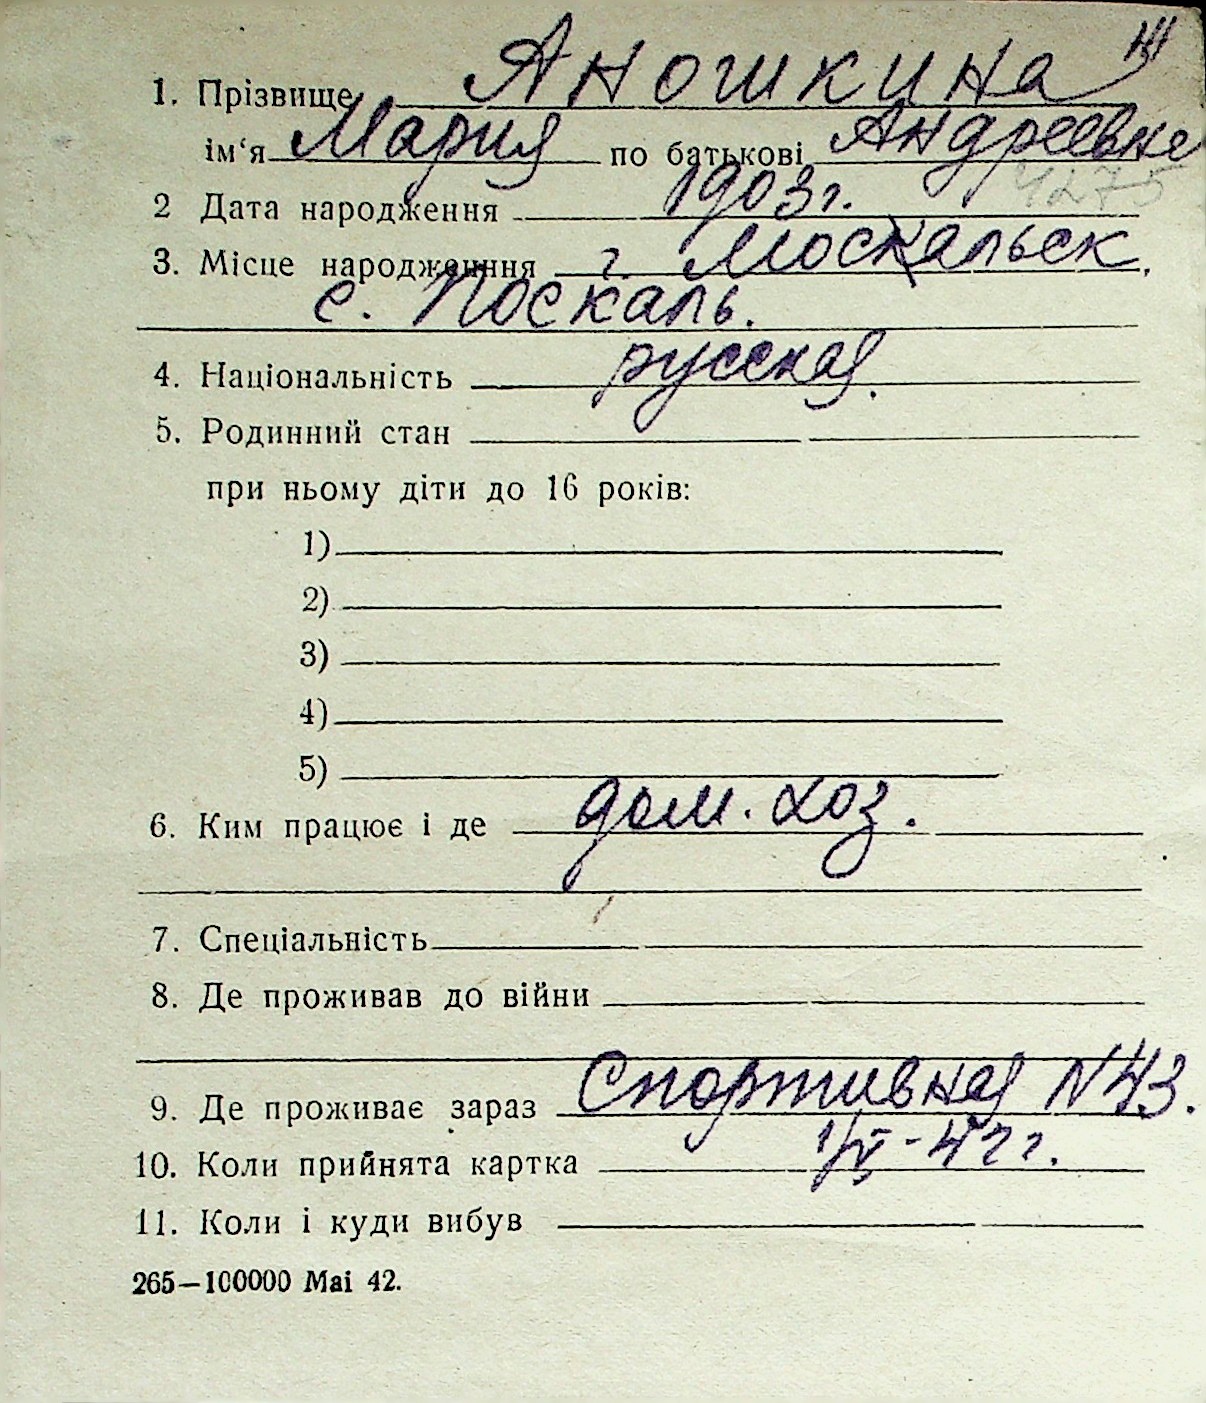 1. Прізвище Аношкина
ім‘я Мария по батькові Андреевна
4275
2 Дата народження 1903 г.
3. Місце народженння г. Москальск,
с. Поскаль.
4. Національність русская.
5. Родинний стан
при ньому діти до 16 років:
1)
2)
3)
4)
5)
6. Ким працює і де дом. хоз.
7. Спеціальність
8. Де проживав до війни
9. Де проживає зараз Спортивная N 43.
10. Коли прийнята картка
11. Коли і куди вибув
265—100000 Mai 42.